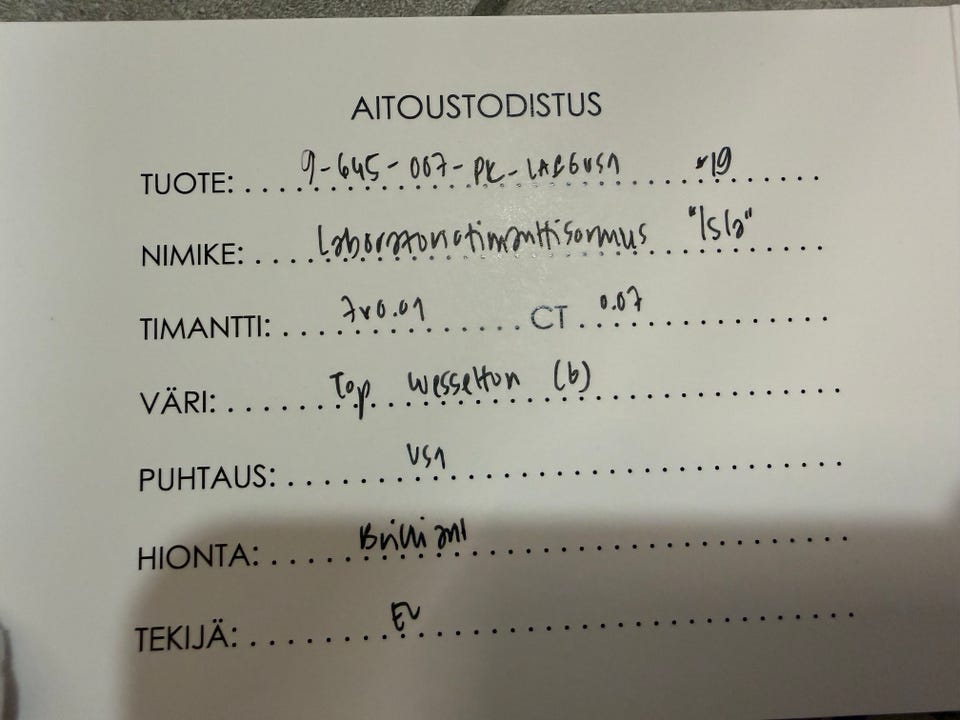 AITOUSTODISTUS
TUOTE: 9-645-007-PK-LABGVS1 #19
NIMIKE: Laboratoriotimanttisormus "Isla"
TIMANTTI: 7x0.01 CT 0.07
VÄRI: Top Wesselton (b)
PUHTAUS: VS1
HIONTA: Brilliant
TEKIJÄ: